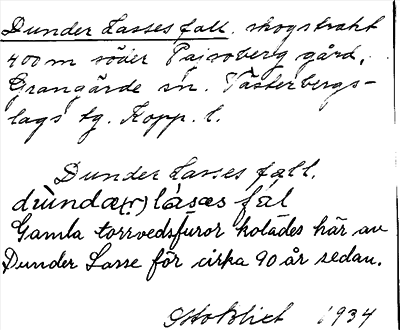 Dunder Lasses fall. skogstrakt
400 m söder Pajsoberg gård,
Grangärde sn. Västerbergs-
lags tg. Kopp. l.
Dunder Lasses fall.
drùndæ(r) lásæs fál
Gamla torrvedsfuror kolades här av
Dunder Lasse för cirka 90 år sedan.
1934